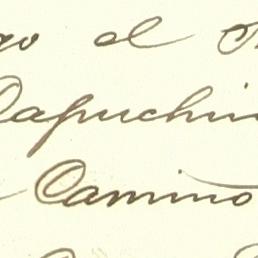 go el
Capuchin
Camino